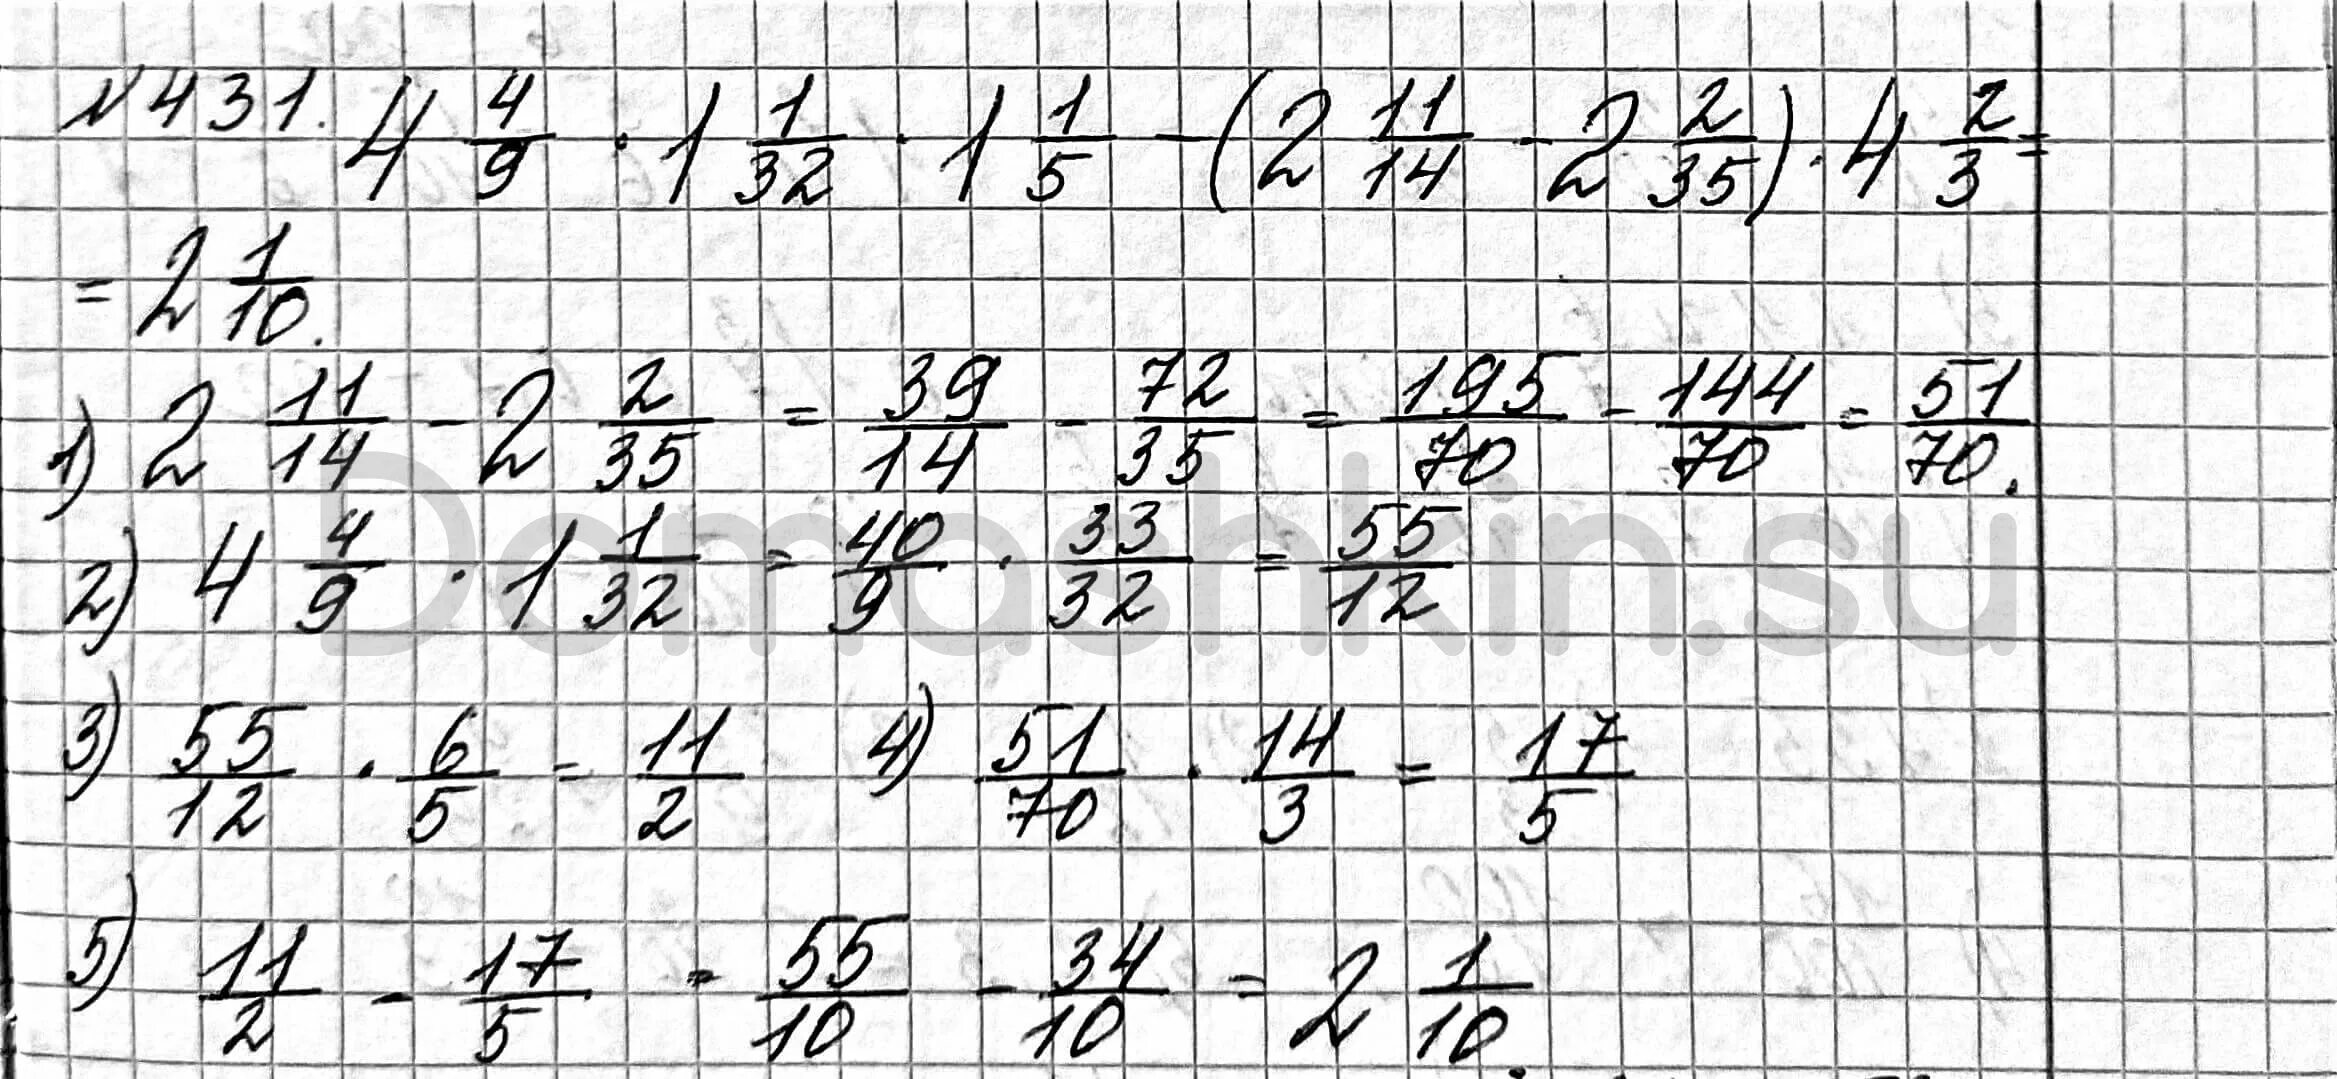 №431. 4 4/9 · 1 1/32 · 1 1/5 - (2 11/14 - 2 2/35) · 4 2/3 =
= 2 1/10.
1) 2 11/14 - 2 2/35 = 39/14 - 72/35 = 195/70 - 144/70 = 51/70.
2) 4 4/9 · 1 1/32 = 40/9 · 33/32 = 55/12
3) 55/12 · 6/5 = 11/2 4) 51/70 · 14/3 = 17/5
5) 11/2 - 17/5 = 55/10 - 34/10 = 2 1/10.
Domashkin.su